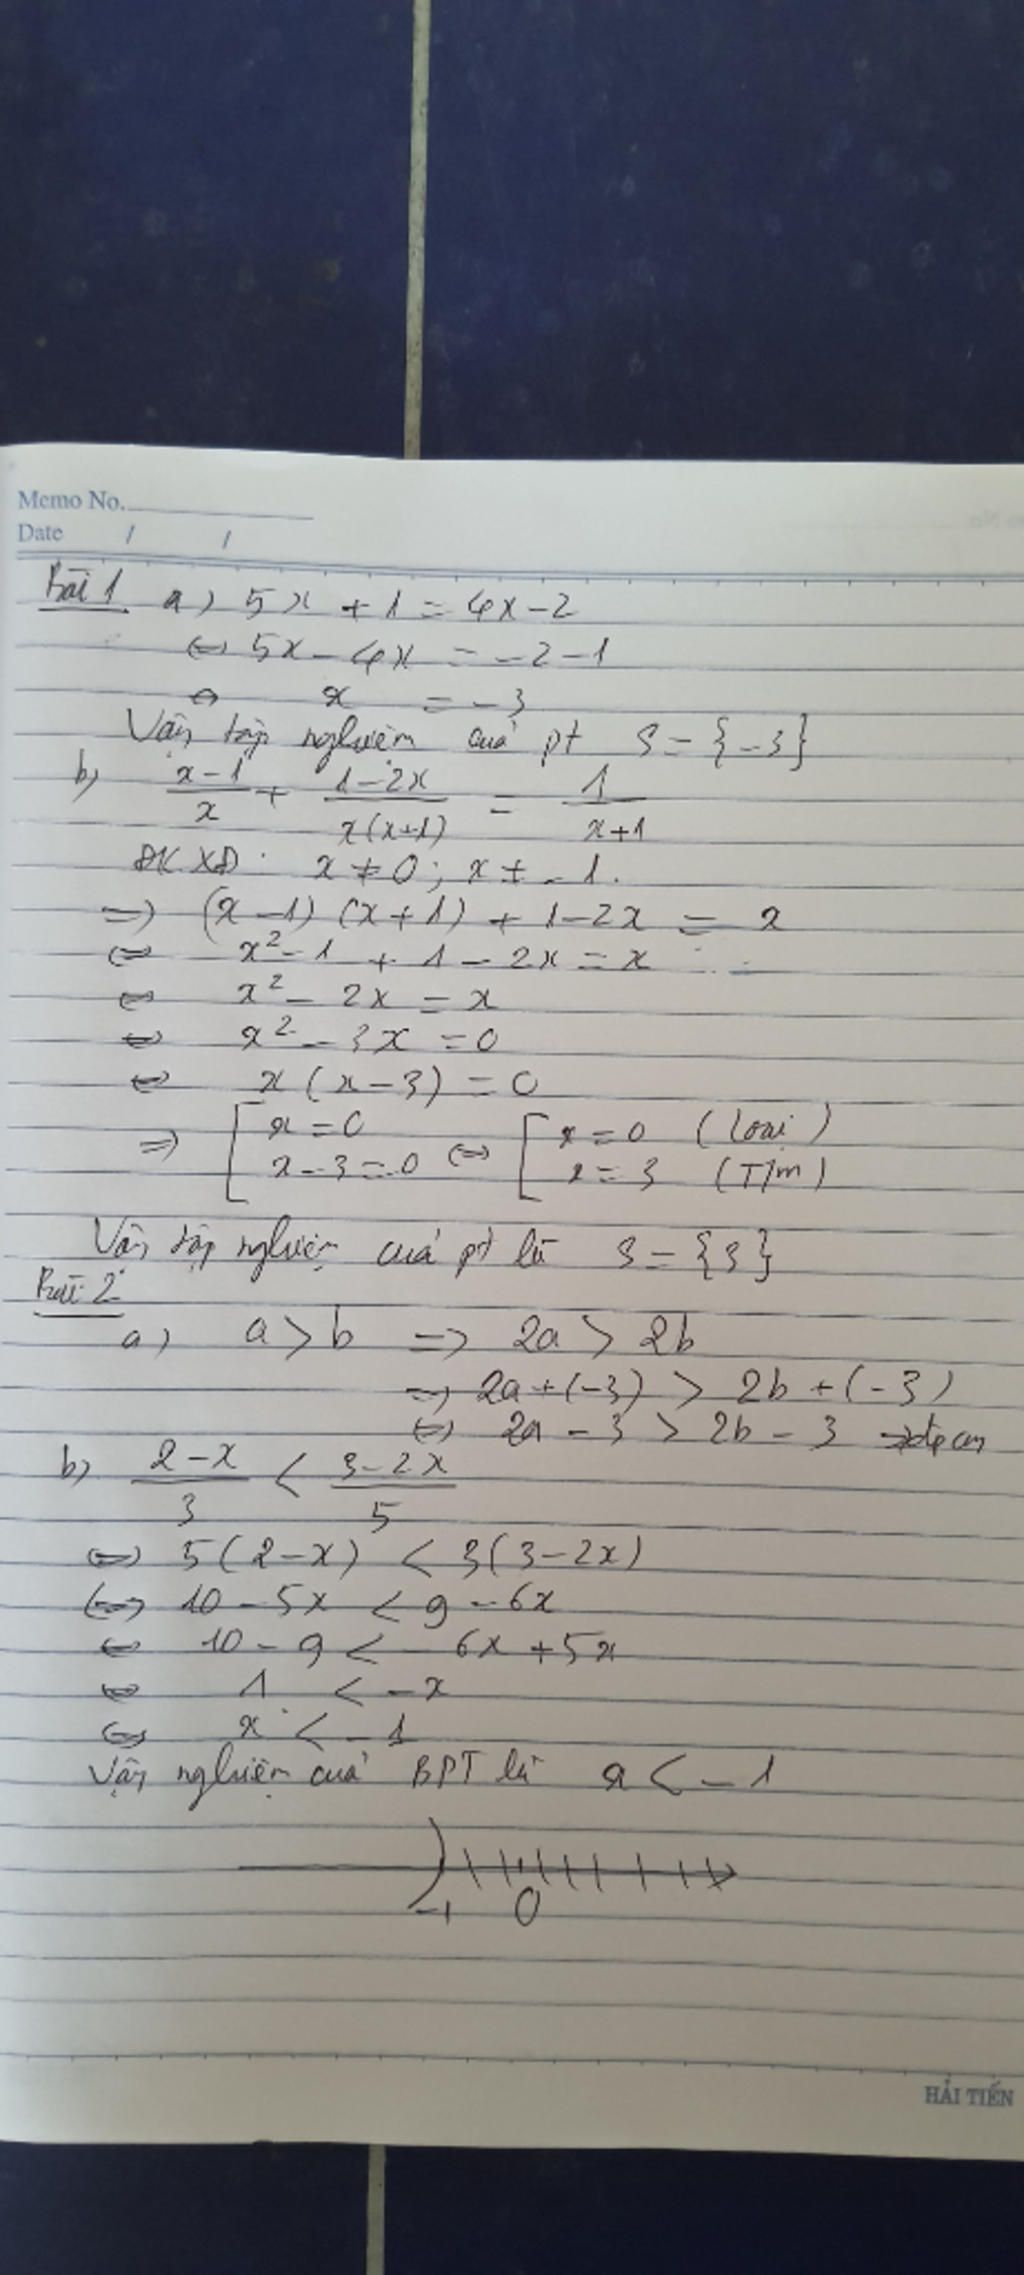 Memo No.
Date / /
Bài 1 a) 5x + 1 = 4x - 2
⇔ 5x - 4x = -2 - 1
⇔ x = -3
Vậy tập nghiệm của pt S = {-3}
b) (x-1)/x + (1-2x)/(x(x+1)) = 1/(x+1)
ĐKXĐ: x ≠ 0; x ≠ -1.
⇒ (x-1)(x+1) + 1-2x = x
⇔ x² - 1 + 1 - 2x = x
⇔ x² - 2x = x
⇔ x² - 3x = 0
⇔ x(x-3) = 0
⇒ [ x = 0 ⇔ [ x = 0 (loại)
x - 3 = 0 x = 3 (T/m)
Vậy tập nghiệm của pt là S = {3}
Bài 2
a) a > b ⇒ 2a > 2b
⇒ 2a + (-3) > 2b + (-3)
⇔ 2a - 3 > 2b - 3 ⇒ đpcm
b) (2-x)/3 < (3-2x)/5
⇔ 5(2-x) < 3(3-2x)
⇔ 10 - 5x < 9 - 6x
⇔ 10 - 9 < -6x + 5x
⇔ 1 < -x
⇔ x < -1
Vậy nghiệm của BPT là x < -1
-1 0
HẢI TIẾN